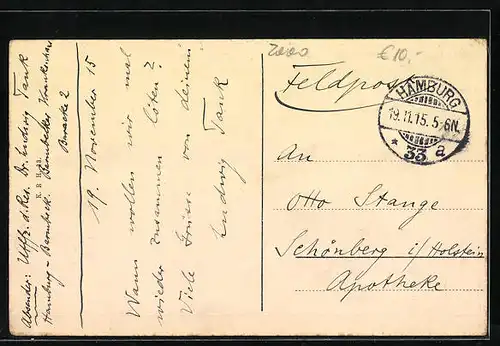 Absender: Uffz. d. Res. Dr. Ludwig Tank
Hamburg - Barmbeck. Barmbecker Krankenhaus
Baracke 2
K. R H.
19. November 15
Wann wollen wir mal
wieder zusammen löten?
Viele Grüsse von deinem
Ludwig Tank
€10,-
Feldpost
HAMBURG
19.11.15. 5-6N.
* 33 a
An
Otto Stange
Schönberg i/Holstein
Apotheke